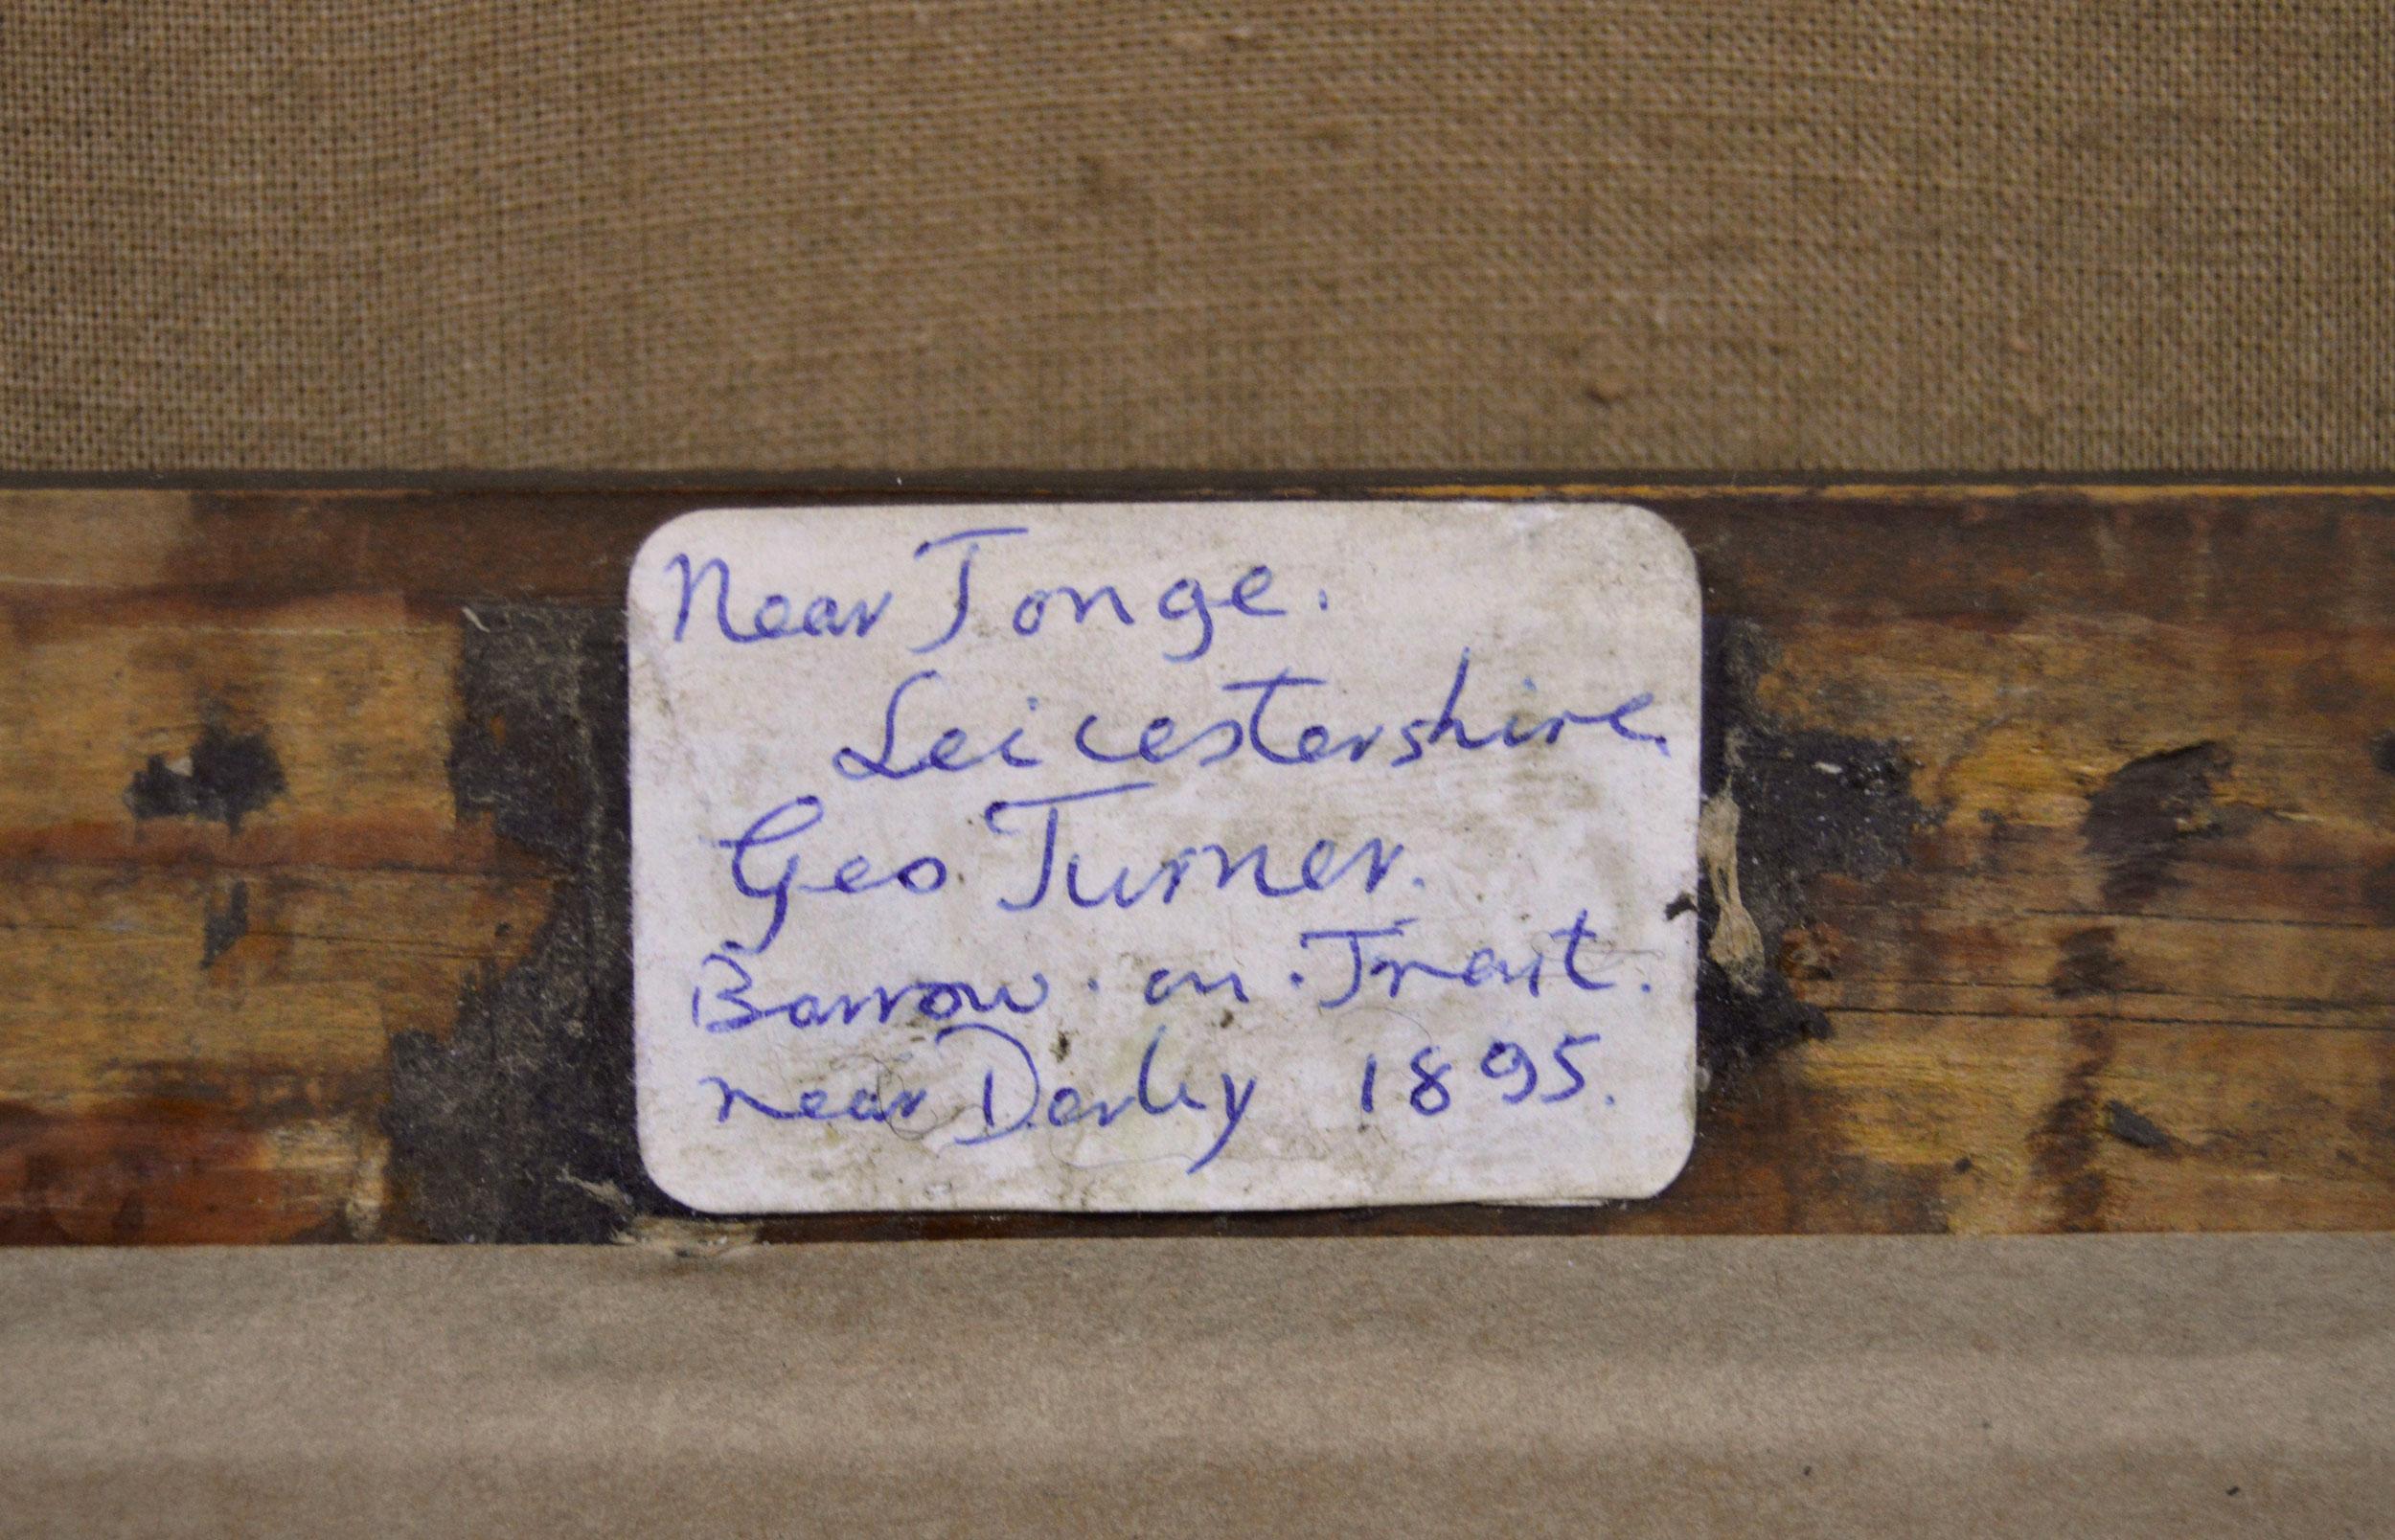 Near Tonge.
Leicestershire.
Geo. Turner.
Barrow · on · Trent.
near Derby 1895.